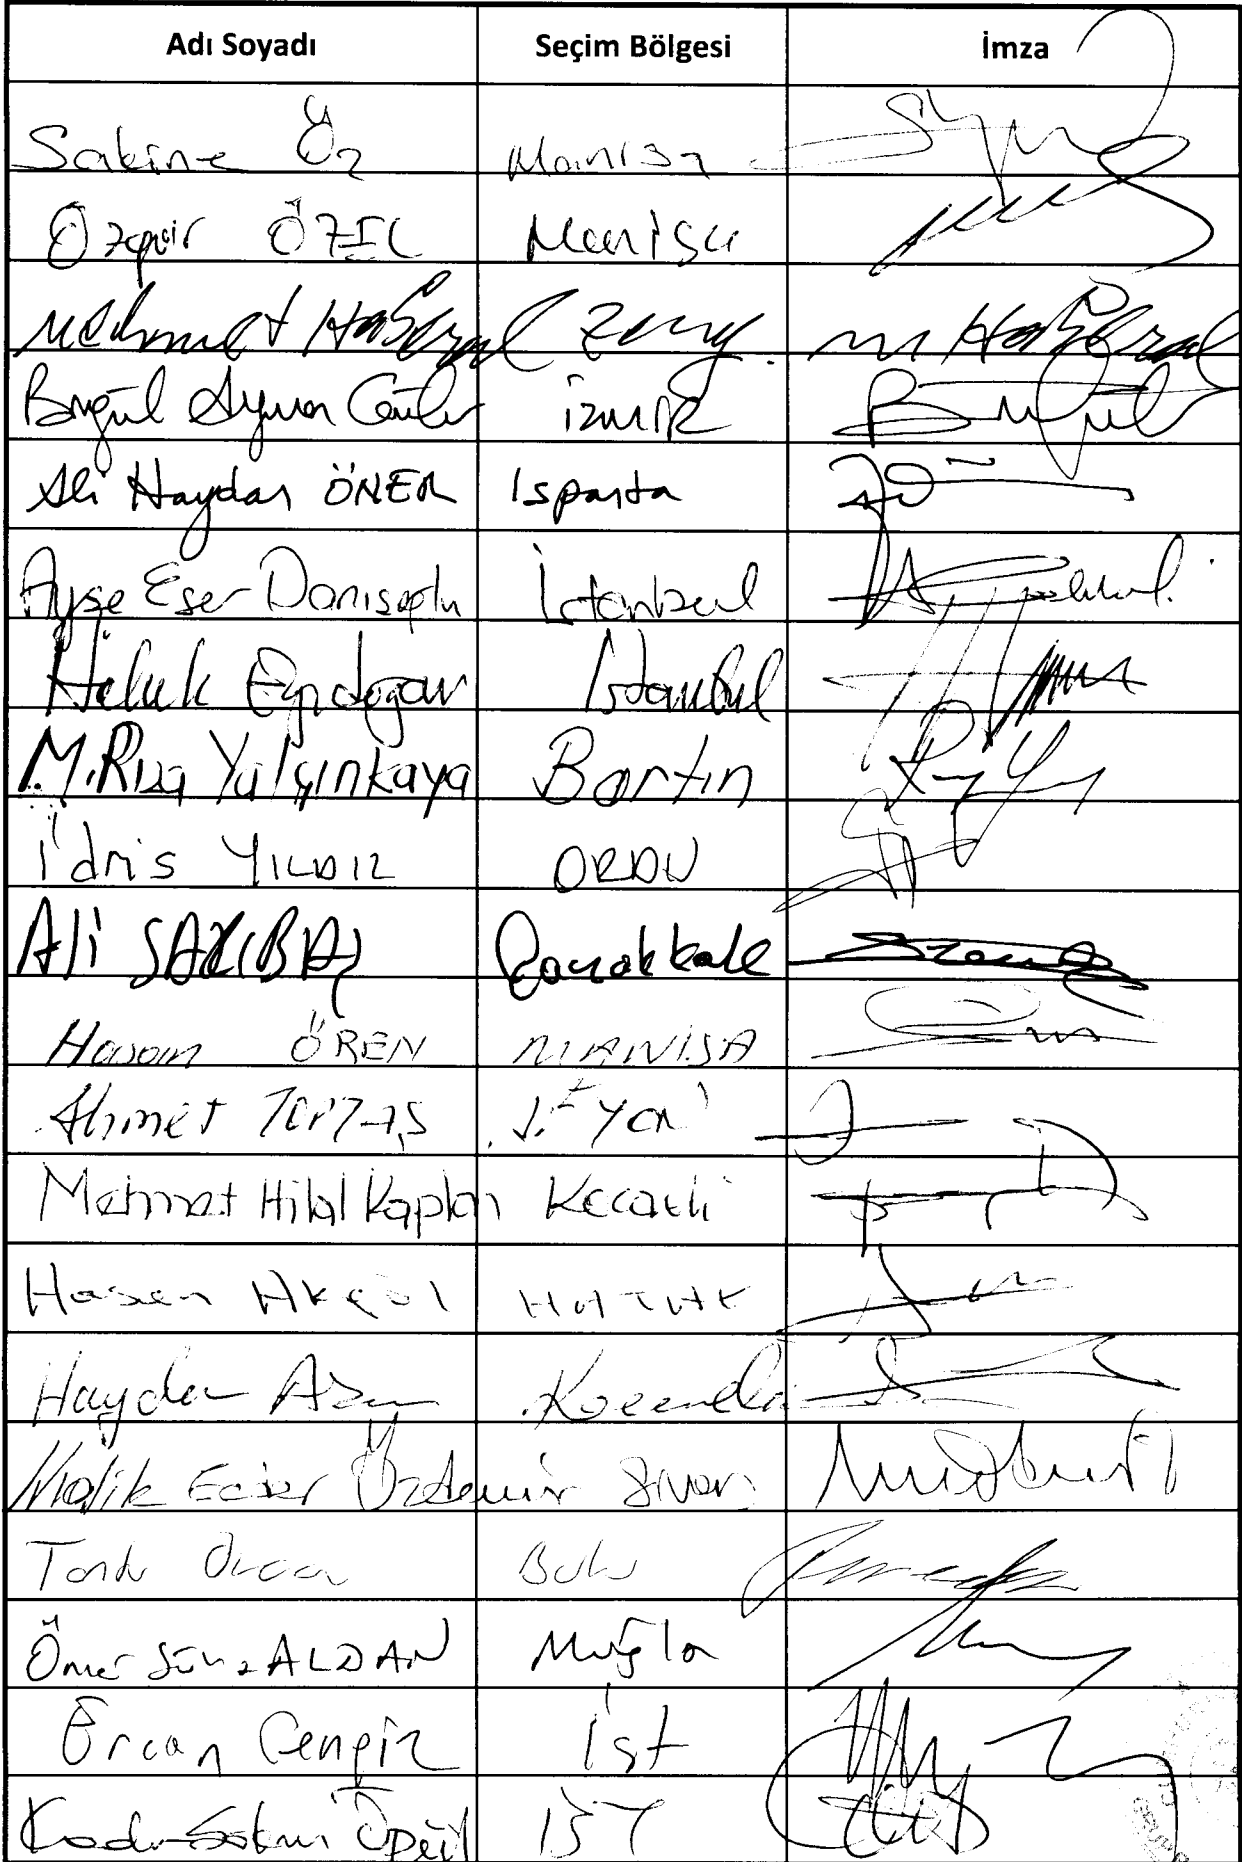 Adı Soyadı Seçim Bölgesi İmza
Sakine Öz Manisa
Özgür ÖZEL Manisa
Mehmet Haberal Zong. m Haberal
Birgül Ayman Güler İZMİR Birgül
Ali Haydar ÖNER Isparta
Ayşe Eser Danışoğlu İstanbul
Haluk Eyidoğan İstanbul
M.Rıza Yalçınkaya Bartın
İdris YILDIZ ORDU
Ali SARIBAŞ Çanakkale
Hasan ÖREN MANİSA
Ahmet TOPTAŞ
Mehmet Hilal Kaplan Kocaeli
Hasan Akgöl HATAY
Haydar Akar Kocaeli
Malik Ecder Özdemir Sivas
Tanju Özcan Bolu
Ömer Süha ALDAN Muğla
Ercan Cengiz İst
Kadir Öğüt İST